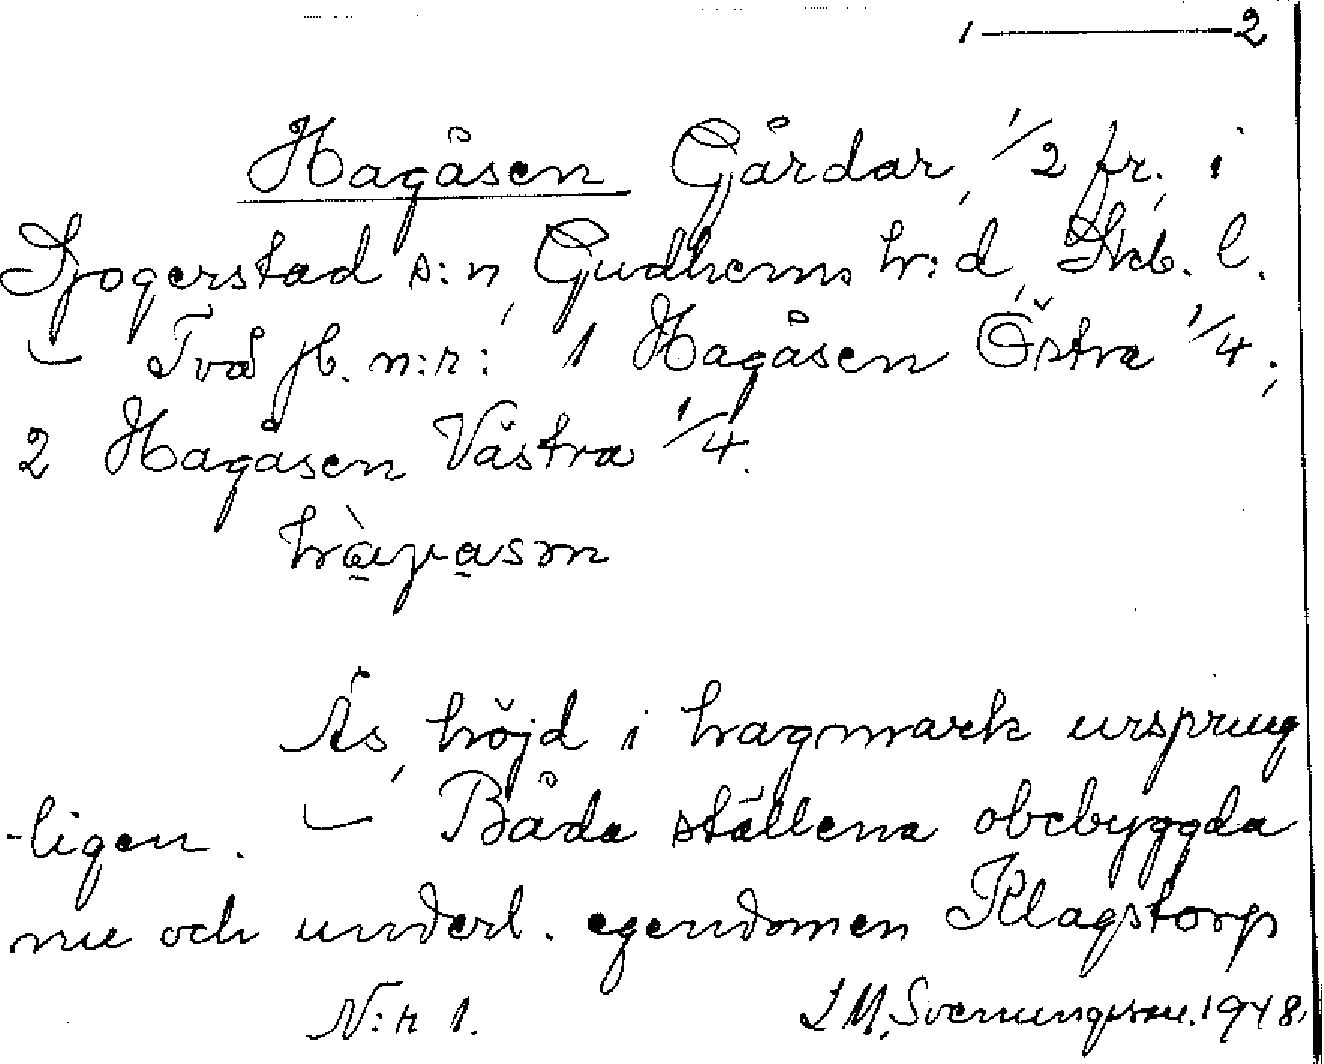 1 — 2
Hagåsen Gårdar, 1/2 fr., i
Sjogerstad s:n, Gudhems h:d, Skb. l.
— Två jb. n:r: 1 Hagåsen Östra 1/4;
2 Hagåsen Västra 1/4.
Ås, höjd i hagmark ursprung
-ligen. — Båda ställena obebyggda
nu och underl. egendomen Klagstorp
N:r 1. Svenungsson. 1948.